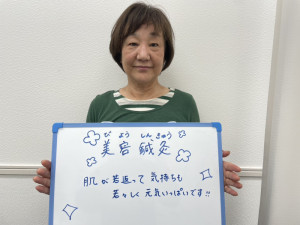 びようしんきゅう
美容鍼灸
肌が若返って気持ちも
若々しく元気いっぱいです!!